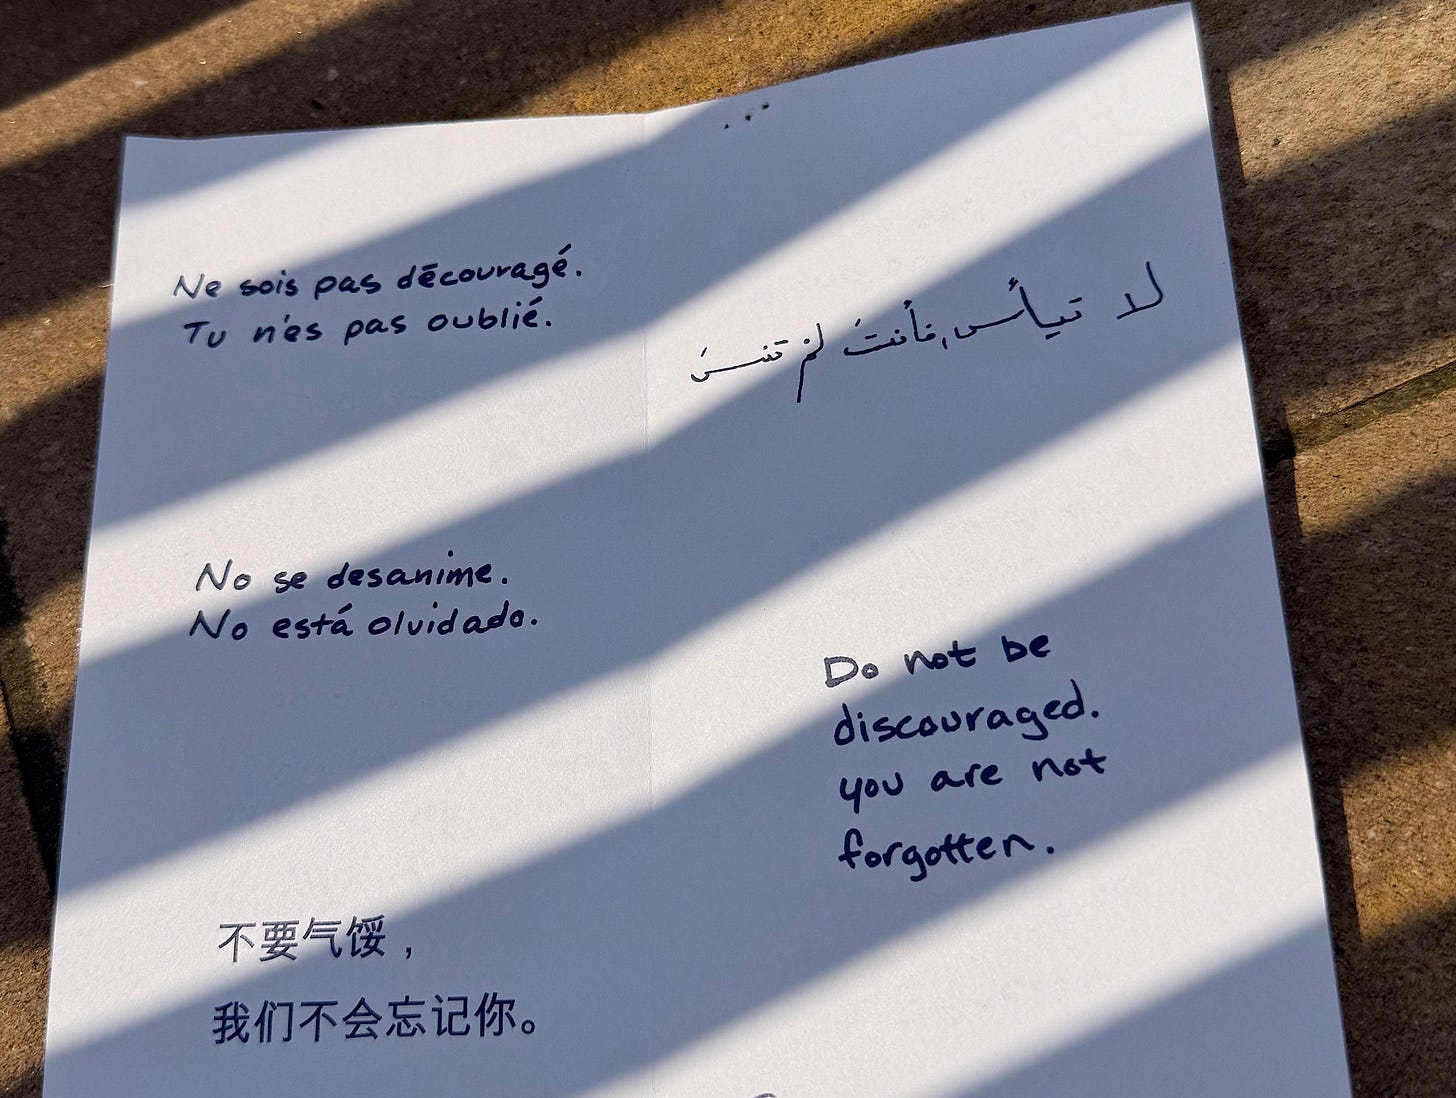 Ne sois pas dēcouragé.
Tu n'es pas oublié.
لا تيأس، فأنتَ لم تنسَ
No se desanime.
No está olvidado.
Do not be
discouraged.
you are not
forgotten.
不要气馁，
我们不会忘记你。